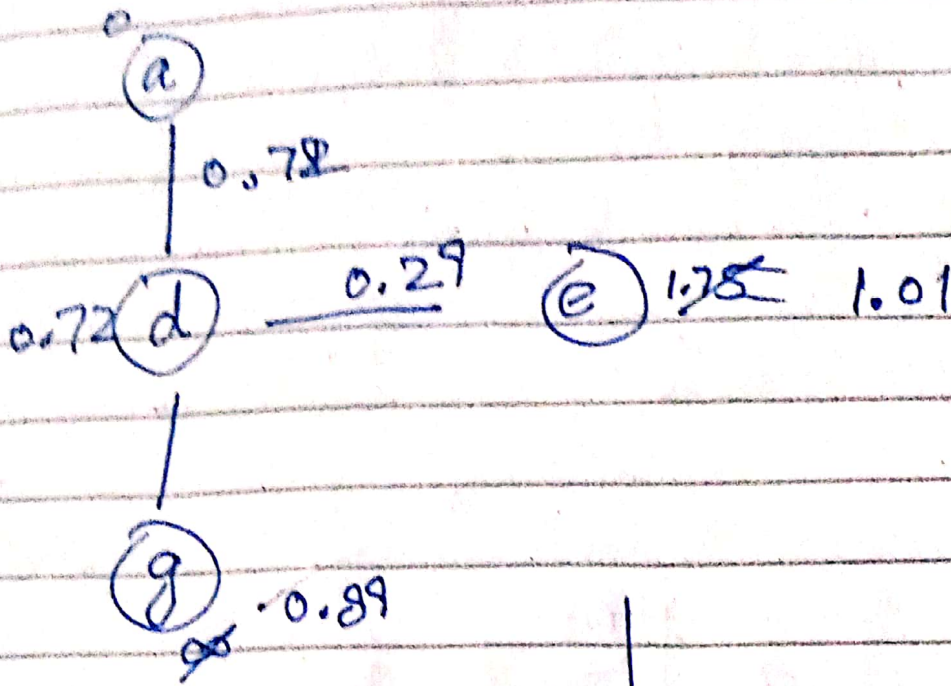 0
a
0.78
0.72 d 0.29 e 1.01
g
0.89
∞